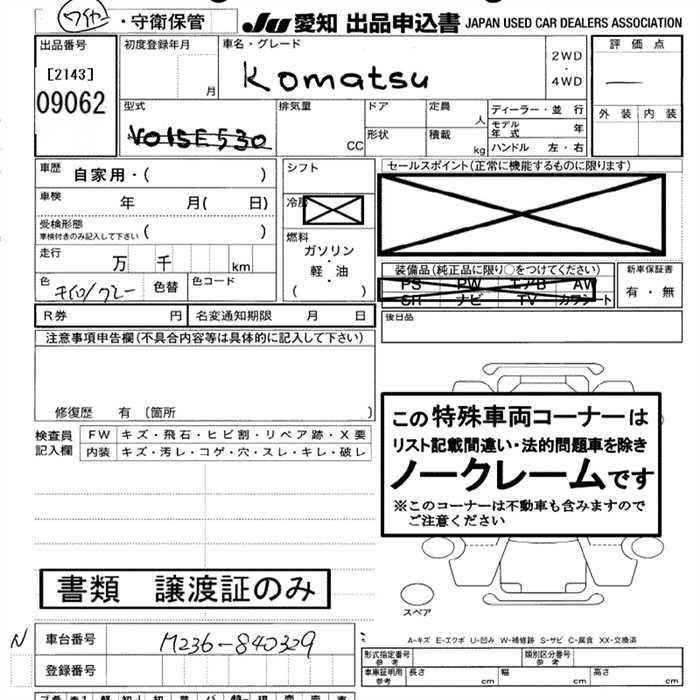 ワイヤー・守衛保管 JU 愛知 出品申込書 JAPAN USED CAR DEALERS ASSOCIATION
出品番号
[2143]
09062
初度登録年月
月
車名・グレード
Komatsu
2WD
・
4WD
評価点
外装 内装
型式
V015E530
排気量
CC
ドア
形状
定員
人
積載
kg
ディーラー・並行
モデル年式 年
ハンドル 左・右
車歴 自家用・( )
車検 年 月( 日)
受検形態
車検付きのみ記入して下さい ( )
走行 万 千 km
色 キイロ/グレー 色替 色コード
シフト
冷房
燃料
ガソリン
・
軽・油
( )
セールスポイント(正常に機能するものに限ります)
装備品(純正品に限り○をつけてください)
PS PW エアB AW
SR ナビ TV カワシート
新車保証書
有・無
R券 円 名変通知期限 月 日
後日品
注意事項申告欄(不具合内容等は具体的に記入して下さい)
修復歴 有 〔箇所 〕
検査員
記入欄
FW キズ・飛石・ヒビ割・リペア跡・X要
内装 キズ・汚レ・コゲ・穴・スレ・キレ・破レ
この特殊車両コーナーは
リスト記載間違い・法的問題車を除き
ノークレームです
※このコーナーは不動車も含みますので
ご注意ください
書類 譲渡証のみ
スペア
N 車台番号 M236-840329
登録番号
A-キズ E-エクボ U-凹み W-補修跡 S-サビ C-腐食 XX-交換済
型式指定番号
参考
類別区分番号
参考
車庫証明用
参考
長さ cm 幅 cm 高さ cm